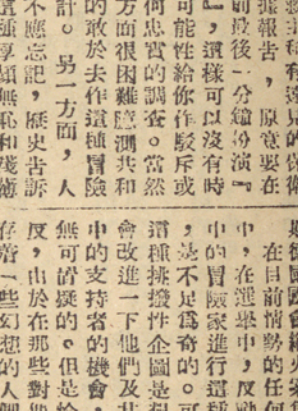 據報告，原意要在
前最後一分鐘扮演『
』，這樣可以沒有時
可能性給你作駁斥或
何忠實的調查。當然
方面很困難臆測共和
的敢於去作這種冒險
計。另一方面，人
不應忘記，歷史告訴
這種厚顏無恥和殘
在目前情勢的任何
中，在選舉中，反動
中的冒險家進行這種
，是不足爲奇的。可
這種挑撥性企圖是
會改進一下他們及其
中的支持者的機會，
無可諱疑的。但是
反，由於在那些對
存着一些幻想的人